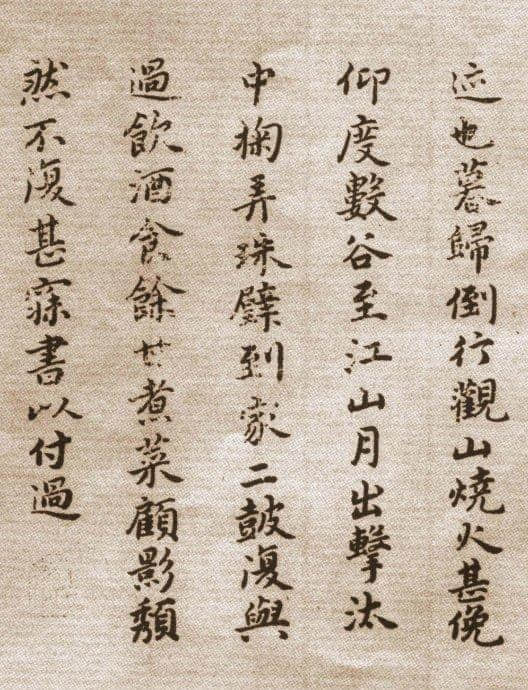 迹也暮歸倒行觀山燒火甚俛
仰度數谷至江山月出擊汰
中掬弄珠璧到家二皷復與
過飲酒食餘甘煮菜顧影頽
然不復甚寐書以付過